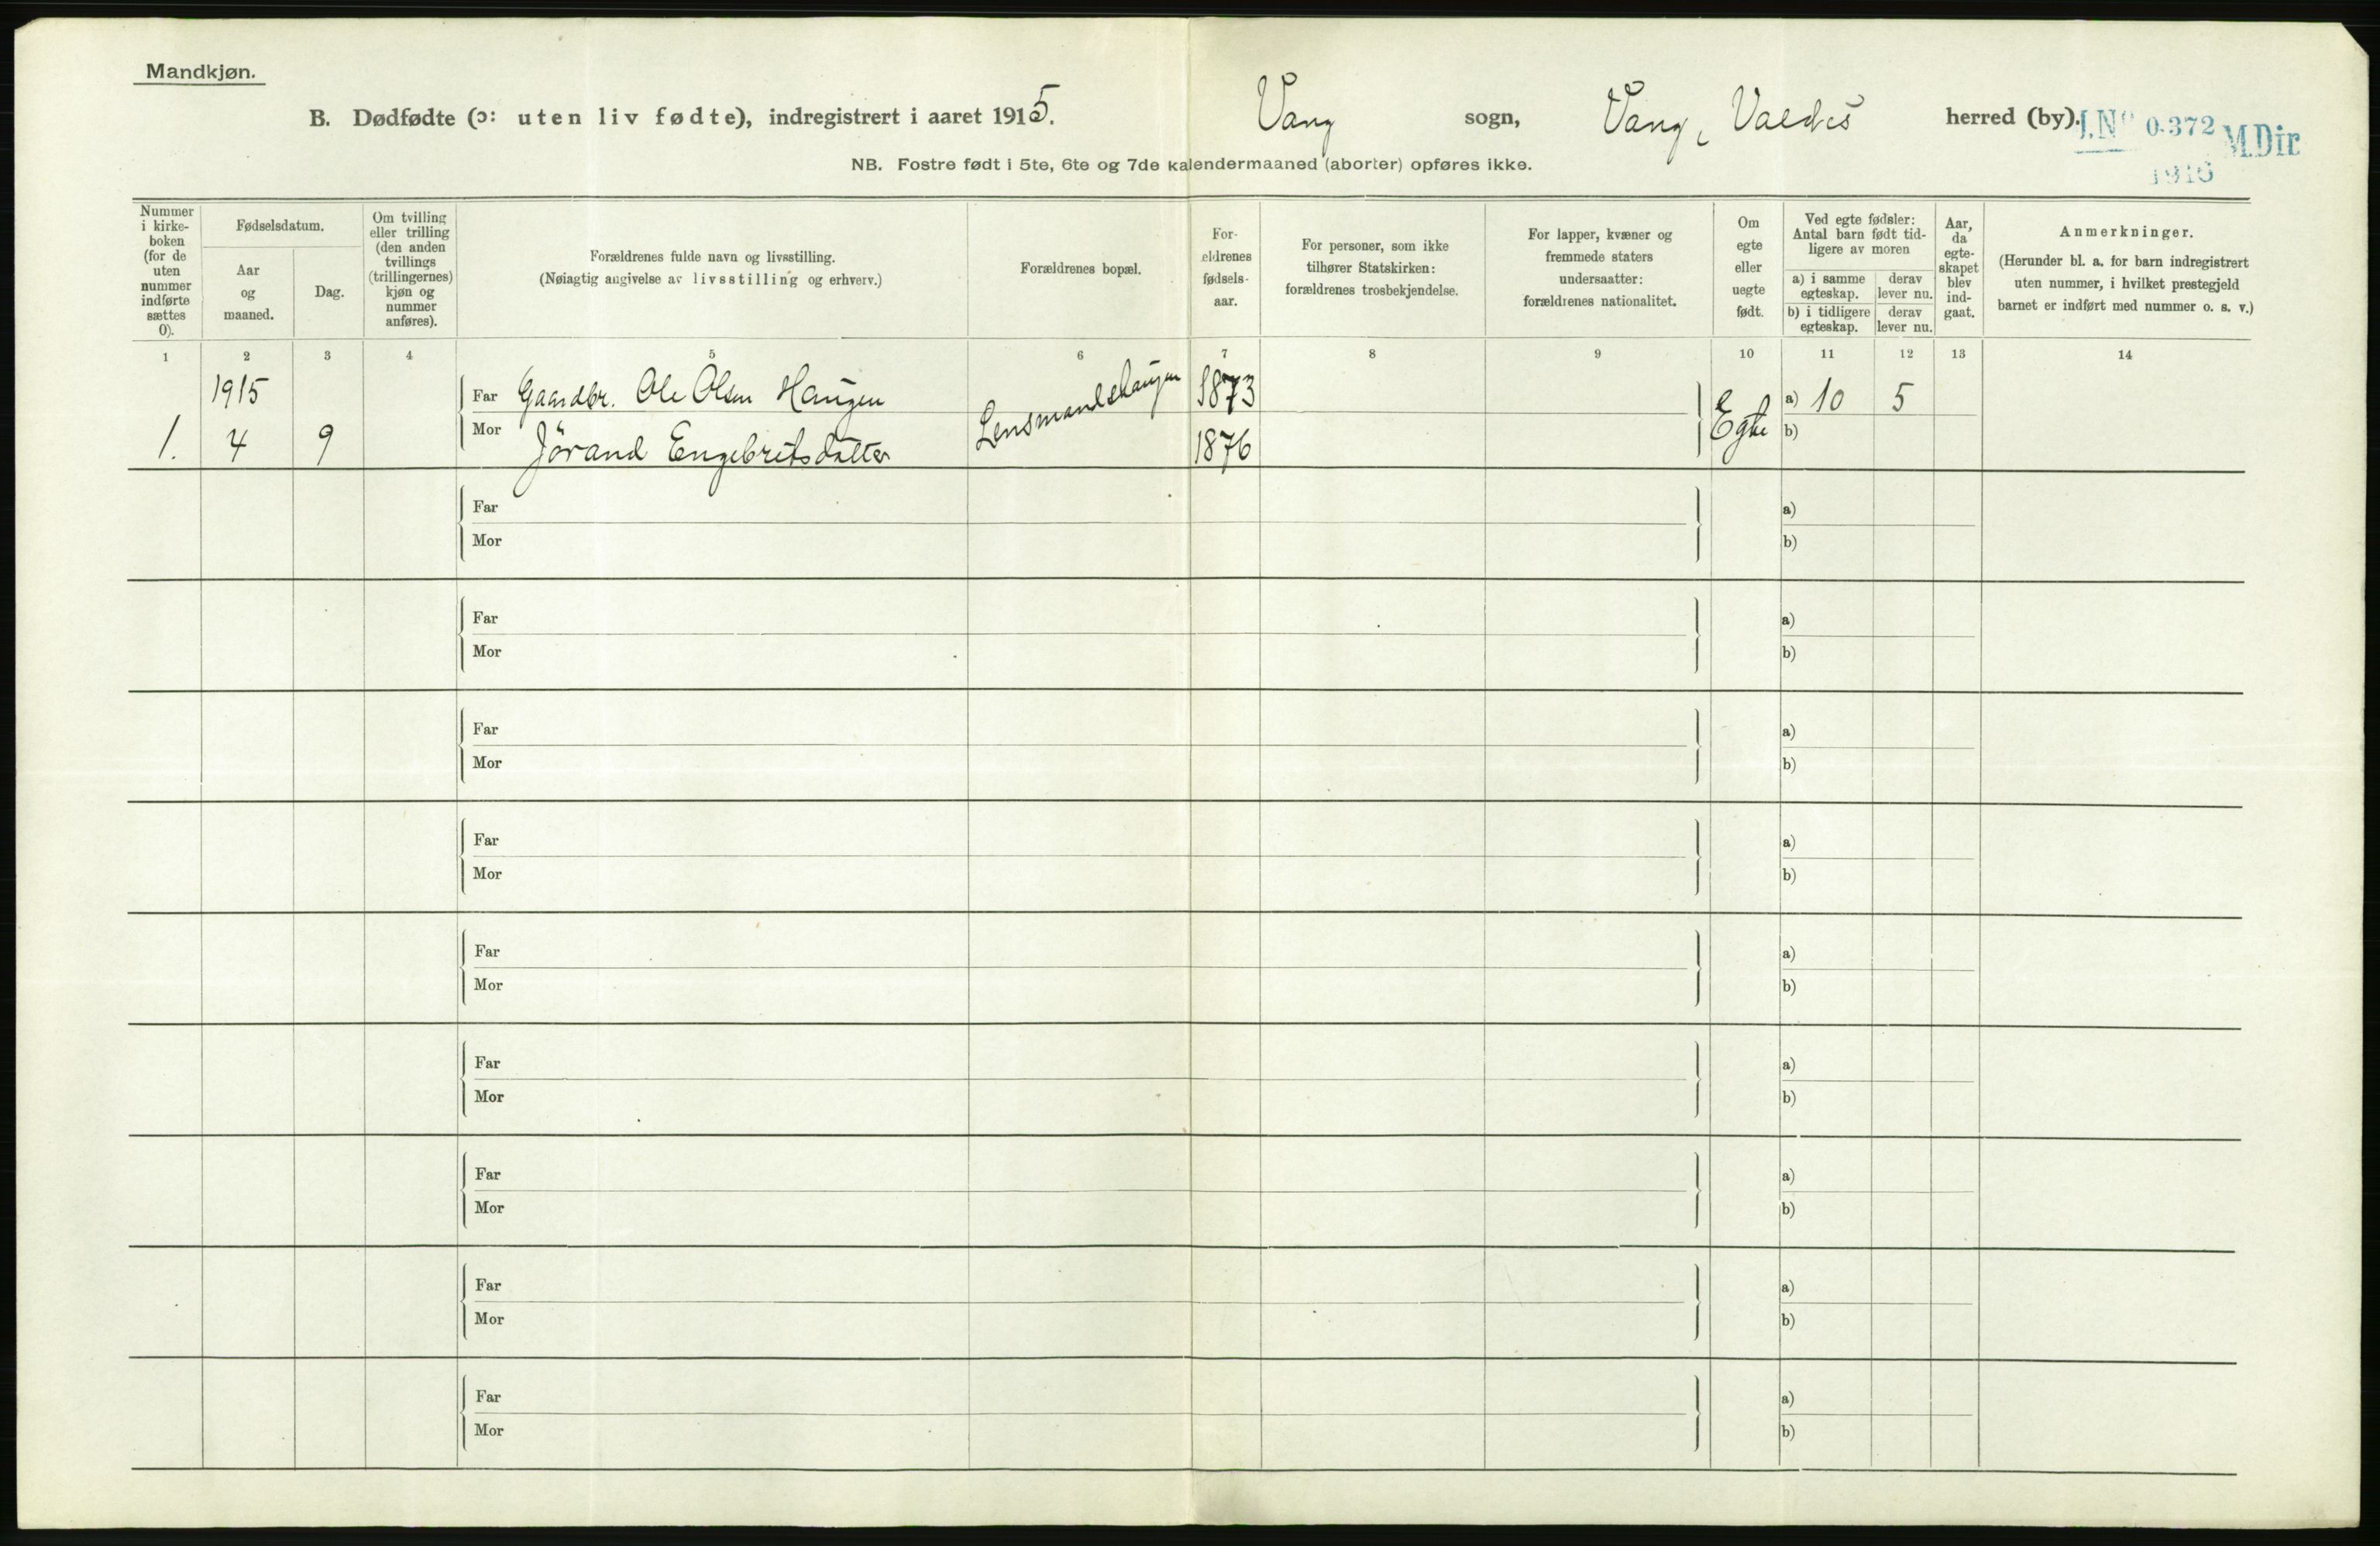 Mandkjøn.
B. Dødfødte (ɔ: uten liv fødte), indregistrert i aaret 1915. Vang sogn, Vang, Valdrs herred (by).
J.Nº 0.372 M.Dir.
1916
NB. Fostre født i 5te, 6te og 7de kalendermaaned (aborter) opføres ikke.
Nummer i kirke-boken (for de uten nummer indførte sættes 0).
Fødselsdatum.
Aar og maaned.
Dag.
Om tvilling eller trilling (den anden tvillings (trillingernes) kjøn og nummer anføres).
Forældrenes fulde navn og livsstilling.
(Nøiagtig angivelse av livsstilling og erhverv.)
Forældrenes bopæl.
For-ældrenes fødsels-aar.
For personer, som ikke tilhører Statskirken: forældrenes trosbekjendelse.
For lapper, kvæner og fremmede staters undersaatter: forældrenes nationalitet.
Om egte eller uegte født.
Ved egte fødsler: Antal barn født tid-ligere av moren
a) i samme egteskap.
derav lever nu.
b) i tidligere egteskap.
derav lever nu.
Aar, da egte-skapet blev ind-gaat.
Anmerkninger.
(Herunder bl. a. for barn indregistrert uten nummer, i hvilket prestegjeld barnet er indført med nummer o. s. v.)
1 2 3 4 5 6 7 8 9 10 11 12 13 14
1915 Far Gaardbr. Ole Olsen Haugen Lensmandshaugen 1873 Egte a) 10 5
1. 4 9 Mor Jørand Engebritsdatter 1876 b)
Far a)
Mor b)
Far a)
Mor b)
Far a)
Mor b)
Far a)
Mor b)
Far a)
Mor b)
Far a)
Mor b)
Far a)
Mor b)
Far a)
Mor b)
Far a)
Mor b)